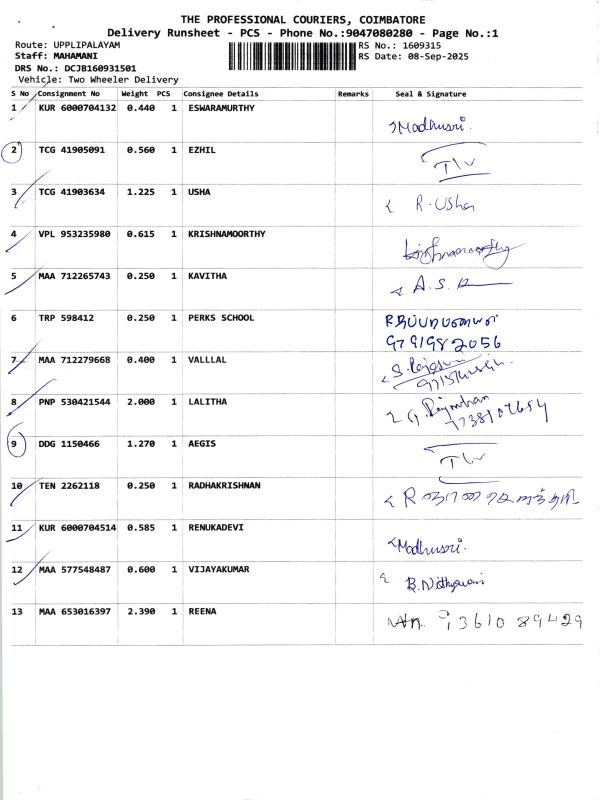 THE PROFESSIONAL COURIERS, COIMBATORE
Delivery Runsheet - PCS - Phone No.:9047080280 - Page No.:1
Route: UPPLIPALAYAM RS No.: 1609315
Staff: MAHAMANI RS Date: 08-Sep-2025
DRS No.: DCJB160931501
Vehicle: Two Wheeler Delivery
S No Consignment No Weight PCS Consignee Details Remarks Seal & Signature
1 KUR 6000704132 0.440 1 ESWARAMURTHY
Madhusri.
2 TCG 41905091 0.560 1 EZHIL
3 TCG 41903634 1.225 1 USHA
R. Usha
4 VPL 953235980 0.615 1 KRISHNAMOORTHY
Krishnamoorthy
5 MAA 712265743 0.250 1 KAVITHA
A. S.
6 TRP 598412 0.250 1 PERKS SCHOOL
9791982056
7 MAA 712279668 0.400 1 VALLLAL
8 PNP 530421544 2.000 1 LALITHA
9 DDG 1150466 1.270 1 AEGIS
10 TEN 2262118 0.250 1 RADHAKRISHNAN
11 KUR 6000704514 0.585 1 RENUKADEVI
Madhusri.
12 MAA 577548487 0.600 1 VIJAYAKUMAR
13 MAA 653016397 2.390 1 REENA
9361089429